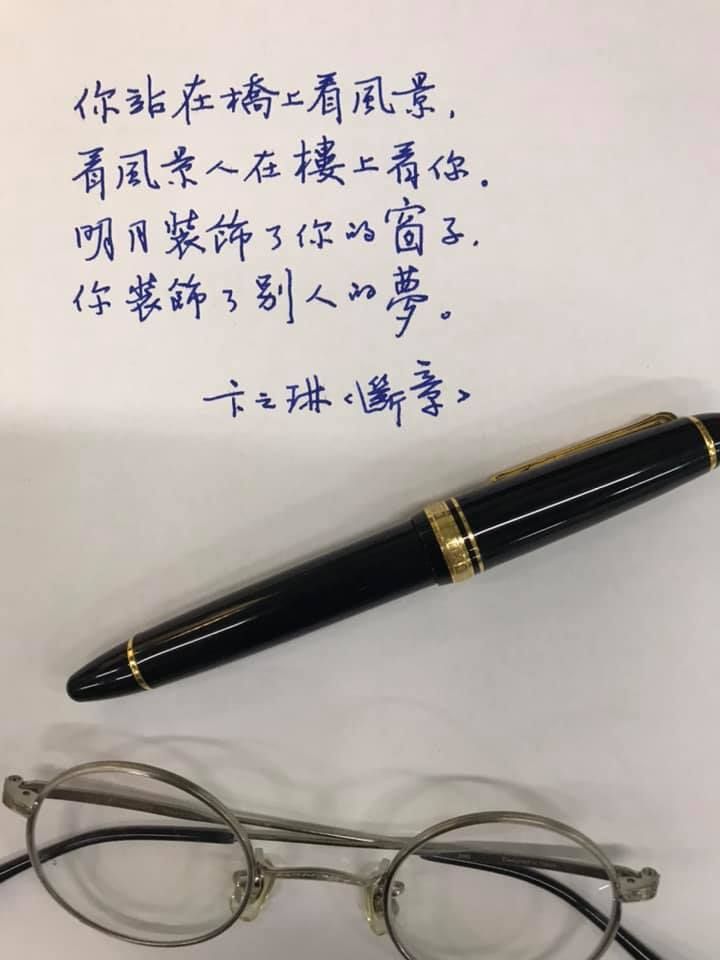 你站在橋上看風景,
看風景人在樓上看你。
明月裝飾了你的窗子,
你裝飾了別人的夢。
卞之琳<斷章>